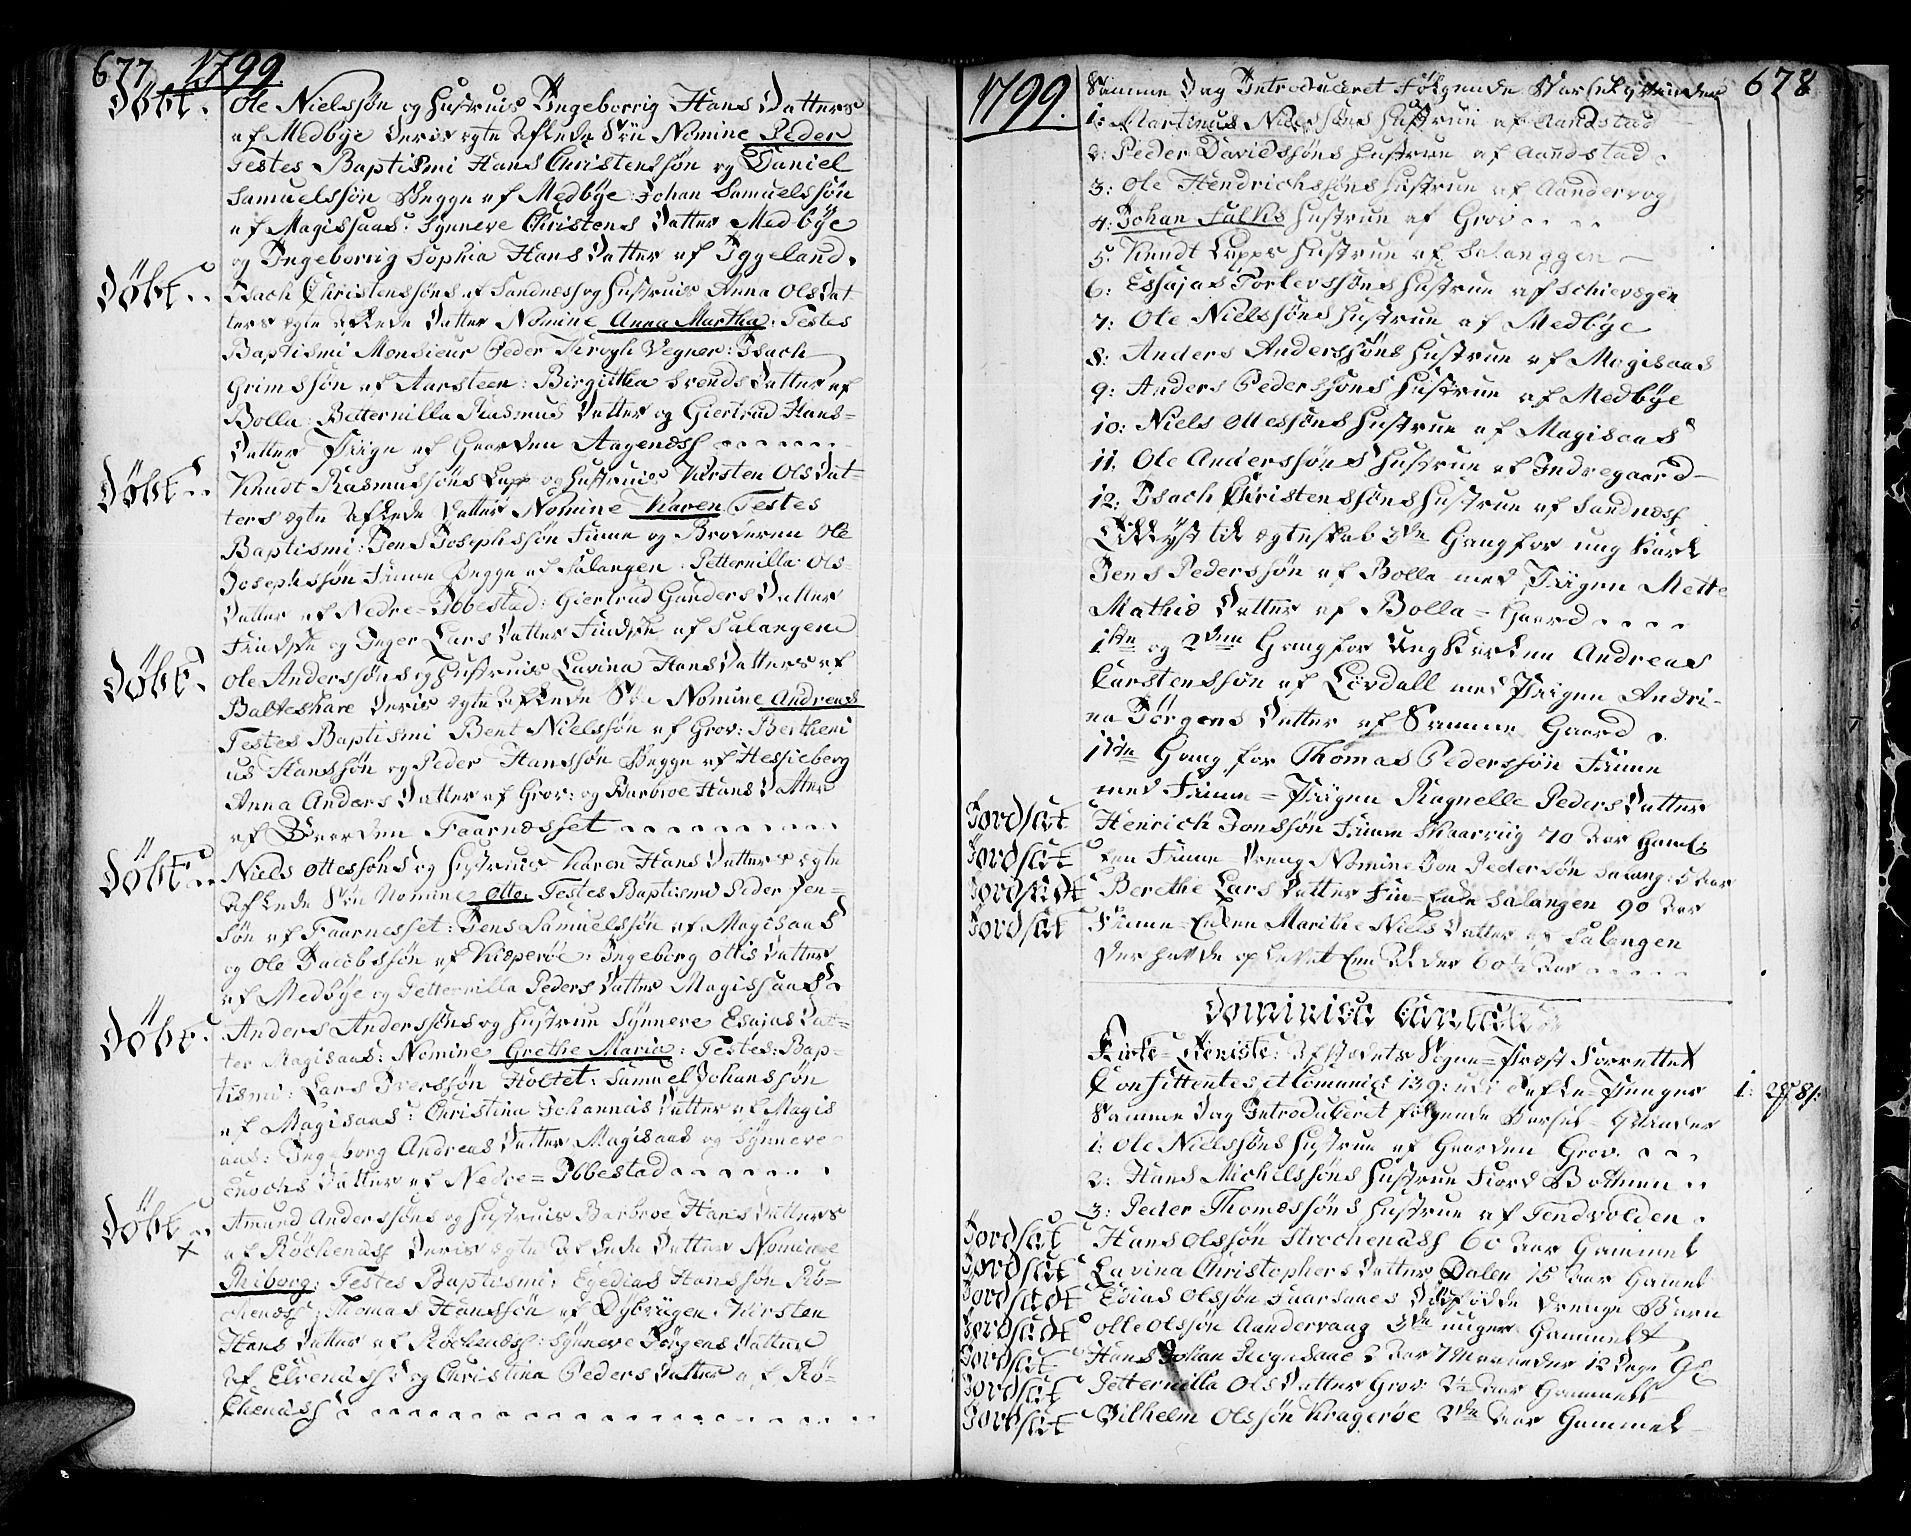 677. 1799.
Döbt. Ole Nielssøn og Hustrues Ingeborrig Hans Datters
af Medbye deris ægte aflede Søn Nomine Peder
Testes Baptismi Hans Christenssøn og Daniel
Samuelssøn Begge af Medbye: Johan Samuelssøn
af Magissaas: Synneve Christens Datter Medbye
og Ingeborrig Sophia Hans Datter af Iggeland.
Döbt.. Isach Christenssøns af Sandnæss og Hustruis Anna Ols Dat
ters ægte aflede Datter Nomine Anna Martha: Testes
Baptismi Monsieur Peder Krogh Vegner: Isach
Grimssøn af Aarsteen: Birgitha Svends Datter af
Bolla: Petternilla Rasmus Datter og Giertrud Hans=
Datter Piige af Gaarden Aagenæss
Döbt.. Knudt Rasmussøns Lapp og Hustruis Kirsten Ols Dat
ters ægte aflede Datter Nomine Karen Testes
Baptismi: Jens Josephssøn Finne og Broderen Ole
Josephssøn Finne Begge af Salangen: Petternilla Ols
Datter af Nedre=Ibbestad: Giertrud Gunders Datter
Findske og Inger Lars Datter Findske af Salangen
Döbt. Ole Anderssøns og Hustruis Lavina Hans Datters af
Balteskare deris ægte aflede Søn Nomine Andreas
Testes Baptismi Bent Nielssøn af Grov: Berthini
us Hanssøn og Peder Hanssøn Begge af Hessieberg
Anna Anders Datter af Grov: og Barbroe Hans Datter
af Gaarden Faarnæsset
Döbt.. Niels Ottessøns og Hustruis Karen Hans Datters ægte
aflede Søn Nomine Otte. Testes Baptismi Peder Jen=
søn af Faarnesset: Jens Samuelssøn af Magisaas
og Ole Jacobssøn af Kræperöe: Ingeborg Ottis Datter
af Medbye og Petternilla Peders Datter Magissaas.
Döbt. Anders Anderssøns og Hustrue Synneve Esaias Dat=
ter Magisaas: Nomine Grethe Maria: Testes: Bap=
tismi: Lars Iverssøn Holtet: Samuel Johanssøn
af Magisaas: Christina Johannis Datter af Magis
aas: Ingeborg Andreas Datter Magisaas og Synneve
Enochs Datter af Nedre=Ibbestad
Döbt.. Amund Anderssøns og Hustruis Barbroe Hans Datters
x af Röckenæss deris ægte aflede Datter Nomine
Riborg: Testes Baptismi: Egedias Hanssøn Rö=
chenæss: Thomas Hanssøn af Dybvigen: Kirsten
Hans Datter af Röckenæss: Synneve Jörgens Datter
af Elvenæss: og Christina Peders Datter af Rö=
chenæss
1799. Samme Dag Introduceret Følgende Barselqvinder 678
1: Martinus Nielssøns Hustrue af Aandstad
2: Peder Davidssøns Hustrue af Aandstad.
3: Ole Hendrichssøns Hustrue af Aandervog
4: Johan Falks Hustrue af Grov
5: Knudt Lapps Hustrue af Salanggen
6: Essajas Torlevssøns Hustrue af Schievogen
7: Ole Nielssøns Hustrue af Medbye
8: Anders Anderssøns Hustrue af Magisaas
9: Anders Pederssøns Hustrue af Medbye
10: Niels Ottessøns Hustrue af Magisaas
11. Ole Anderssøns Hustrue af Indregaard
12: Isach Christenssøns Hustrue af Sandnæss
Tillyst til ægteskab 3de Gang for ung Karl
Jens Pederssøn af Bolla med Piigen Mette
Mathis Datter af Bolla=Gaard
1ste og 2den Gang for Ung Karlen Andreas
Carstenssøn af Løvdall med Piigen Andri=
na Jørgens Datter af Samme Gaard.
1ste Gang for Thomas Pederssøn Finne
med Finne=Piigen Ragnelle Peders Datter
Jordsat Henrich Jonssøn Finne Skaarvig 70 Aar Gaml:
Jordsat den Finne Dreng Nomine Jon Pedersøn Salang: 5 Aar
Jordsadt Berethe Lars Datter Fin=Enke Salangen 90 Aar
Jordsat Finne=Enken Marithe Niels Datter af Salangen
der havde oplevet Enn Alder 60½ Aar
Dominica Cantate
Kirke=Tieniste: af Stedets Sogne=Præst Forrettet
Confitentes, et Comunic: 139: udi Tavle=Penger 1: 2 81:
Samme Dag Introduceret følgende Barsel=Qvinder
1: Ole Nielssøns Hustrue af Gaarden Grov.
2: Hans Michelssøns Hustrue Fiord Bottnen
3: Peder Thomæssøns Hustrue af Tendvolden.
Jordsat Hans Olssøn Strochenæss 60 Aar Gammel
Jordsat Lavina Christophers Datter Dalen 15 Aar Gamel
Jordsadt Edias Olssøn Faarsanes Dødfødde Drenge Barn
Jordsadt Olle Olssøn Aandervaag 3de uger Gammel
Jordsat Hans Johan Rognsaae 2 Aar 7 Maaneder 12 Dage Gl
Jordsat Petternilla Ols Datter Grov 2½ Aar Gammell
Jordsat Vilhelm Olssøn Kragerøe 2de Aar Gammel